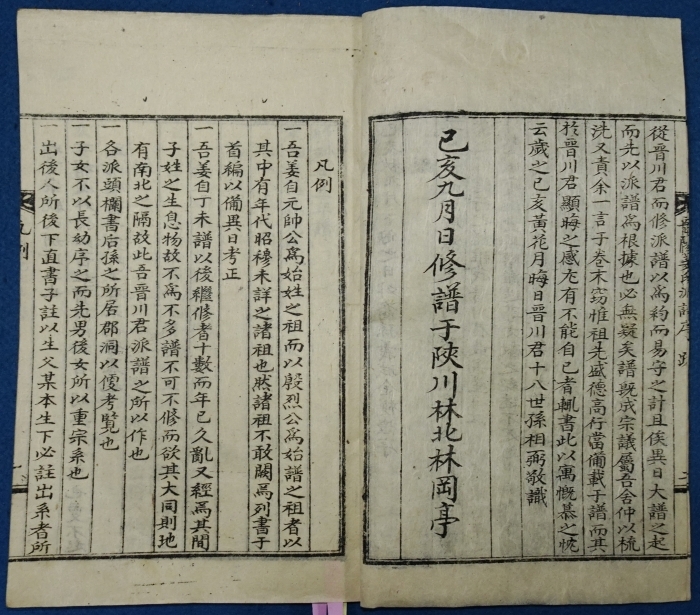 從晉川君而修派譜以爲約而易守之計且俟異日大譜之起
而先以派譜爲根據也必無疑矣譜旣成宗議屬吾舍仲以梳
洗又責余一言于卷末窃惟祖先盛德高行當備載于譜而其
於晉川君顯晦之感尤有不能自已者輒書此以寓慨慕之忱
云歲之己亥黃花月晦日晉川君十八世孫相弼敬識
己亥九月日修譜于陜川林北林岡亭
凡例
一吾姜自元帥公爲始姓之祖而以殷烈公爲始譜之祖者以
其中有年代昭穆未詳之諸祖也然諸祖不敢闕焉列書于
首編以備異日考正
一吾姜自丁未譜以後継修者十數而年已久亂又經焉其間
子姓之生息物故不爲不多譜不可不修而欲其大同則地
有南北之隔故此吾晉川君派譜之所以作也
一各派頭欄書后孫之所居郡洞以便考覧也
一子女不以長幼序之而先男後女所以重宗系也
一出後人所後下直書子註以生父某本生下必註出系者所
凡例
一